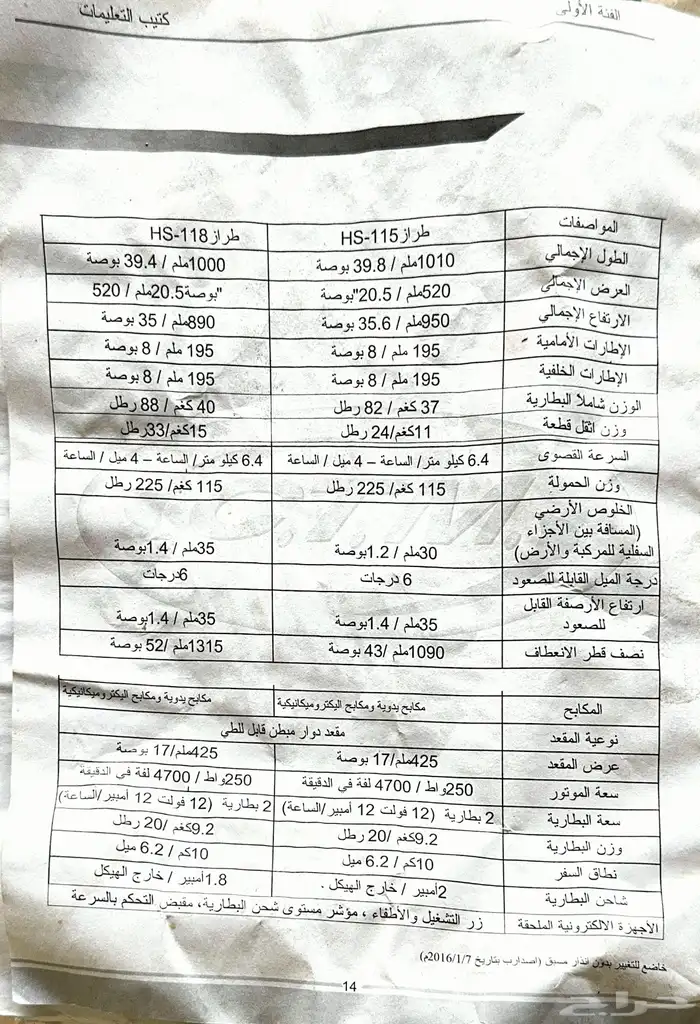 الفئة الأولى
كتيب التعليمات
المواصفات طراز HS-115 طراز HS-118
الطول الإجمالي 1010ملم / 39.8 بوصة 1000ملم / 39.4 بوصة
العرض الإجمالي 520ملم / 20.5"بوصة 520 / 20.5ملم"بوصة
الارتفاع الإجمالي 950ملم / 35.6 بوصة 890ملم / 35 بوصة
الإطارات الأمامية 195 ملم / 8 بوصة 195 ملم / 8 بوصة
الإطارات الخلفية 195 ملم / 8 بوصة 195 ملم / 8 بوصة
الوزن شاملاً البطارية 37 كغم / 82 رطل 40 كغم / 88 رطل
وزن اثقل قطعة 11كغم/24 رطل 15كغم/33رطل
السرعة القصوى 6.4 كيلو متر/ الساعة – 4 ميل / الساعة 6.4 كيلو متر/ الساعة – 4 ميل / الساعة
وزن الحمولة 115 كغم/ 225 رطل 115 كغم/ 225 رطل
الخلوص الأرضي
(المسافة بين الأجزاء
السفلية للمركبة والأرض) 30ملم / 1.2 بوصة 35ملم / 1.4بوصة
درجة الميل القابلة للصعود 6 درجات 6درجات
ارتفاع الأرصفة القابل
للصعود 35ملم / 1.4بوصة 35ملم / 1.4بوصة
نصف قطر الانعطاف 1090ملم /43 بوصة 1315ملم /52 بوصة
المكابح مكابح يدوية ومكابح اليكتروميكانيكية مكابح يدوية ومكابح اليكتروميكانيكية
نوعية المقعد مقعد دوار مبطن قابل للطي
عرض المقعد 425ملم/17 بوصة 425ملم/17 بوصة
سعة الموتور 250واط / 4700 لفة في الدقيقة 250واط / 4700 لفة في الدقيقة
سعة البطارية 2 بطارية (12 فولت 12 أمبير/الساعة) 2 بطارية (12 فولت 12 أمبير/الساعة)
وزن البطارية 9.2كغم /20 رطل 9.2كغم /20 رطل
نطاق السفر 10كم / 6.2 ميل 10كم / 6.2 ميل
شاحن البطارية 2أمبير / خارج الهيكل . 1.8أمبير / خارج الهيكل
الأجهزة الالكترونية الملحقة زر التشغيل والأطفاء ، مؤشر مستوى شحن البطارية، مقبض التحكم بالسرعة
خاضع للتغيير بدون انذار مسبق (اصدارب بتاريخ 2016/1/7م)
14
حراج